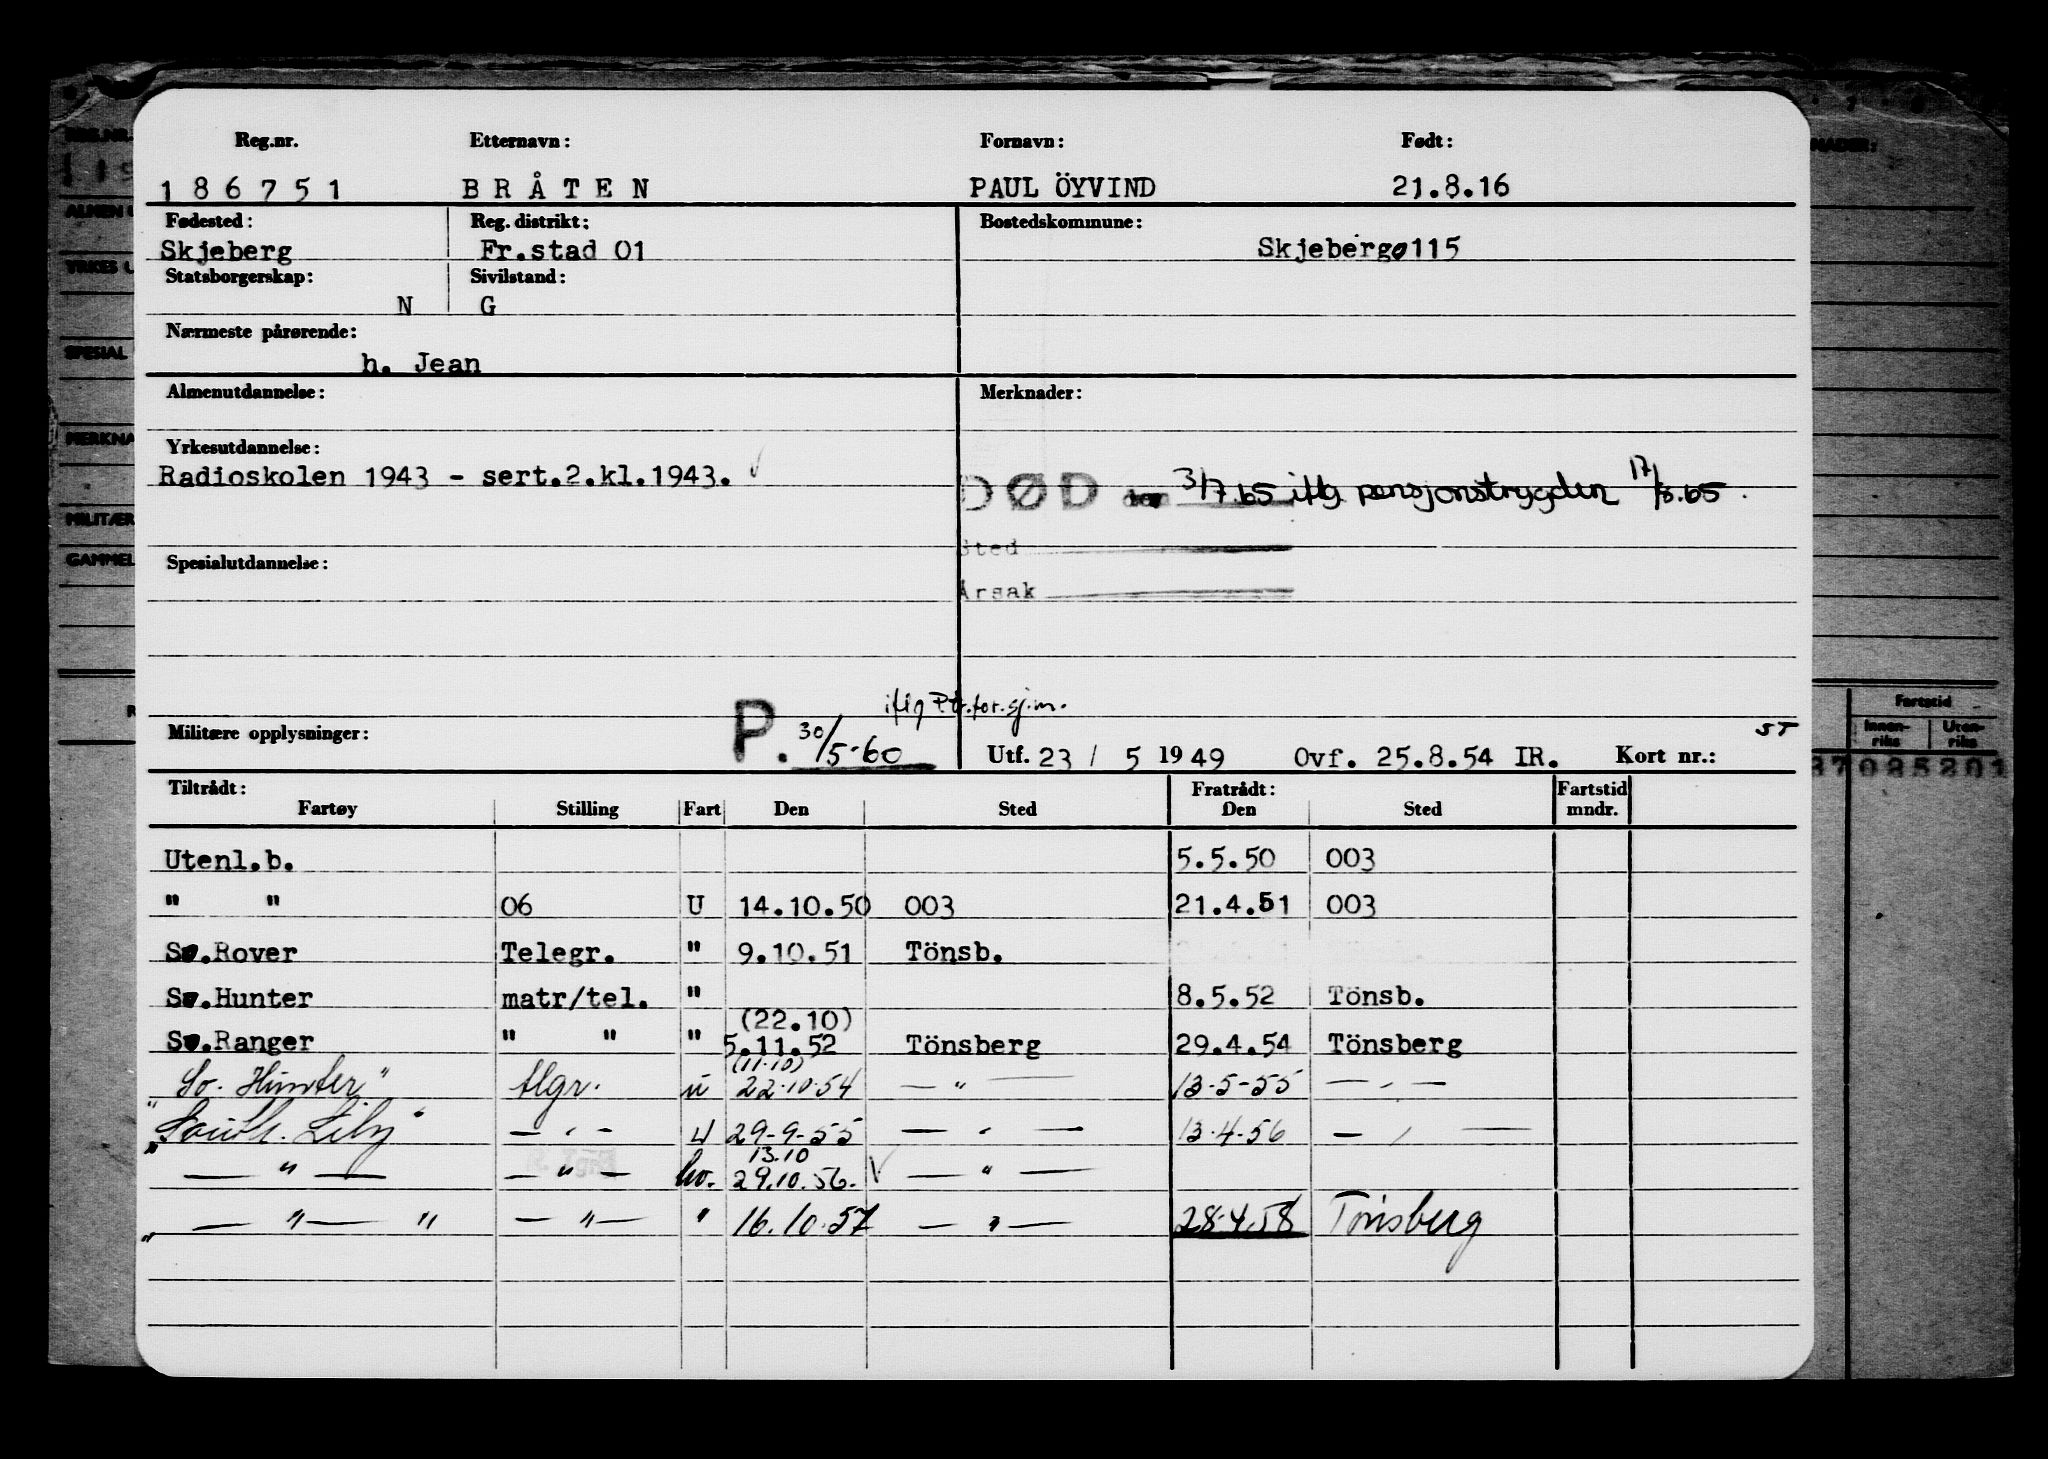 Reg.nr. Etternavn: Fornavn: Født:
186751 BRÅTEN PAUL ÖYVIND 21.8.16
Fødested: Reg. distrikt: Bostedskommune:
Skjeberg Fr.stad 01 Skjeberg 0115
Statsborgerskap: Sivilstand:
N G
Nærmeste pårørende:
h. Jean
Almenutdannelse: Merknader:
Yrkesutdannelse:
Radioskolen 1943 - sert.2.kl.1943.
DØD den 3/7.65 iflg pensjonstrygden 17/8.65.
Sted
Årsak
Spesialutdannelse:
iflg P.tr.for.sj.m.
Militære opplysninger: P. 30/5-60 Utf. 23 / 5 1949 Ovf. 25.8.54 IR. Kort nr.: ST
Tiltrådt: Fratrådt: Fartstid
Fartøy Stilling Fart Den Sted Den Sted mndr.
Utenl.b. 5.5.50 003
" " 06 U 14.10.50 003 21.4.51 003
So.Rover Telegr. " 9.10.51 Tönsb.
So.Hunter matr/tel. " 8.5.52 Tönsb.
(22.10)
So.Ranger " " " 5.11.52 Tönsberg 29.4.54 Tönsberg
(11.10)
So. Hunter" tlgr. u 22.10.54 — " — 13-5-55 — " —
"South. Lily" — " — U 29-9-55 — " — 13.4.56 — " —
13.10
" — " — — " — hv. 29.10.56. V — " —
" — " — " — " — " 16.10.57 — " — 28.4.58 Tönsberg
REG.NR.
ALMEN
YRKES
SPESIAL
MERKNA
MILITÆR
GAMMEL
NADER:
Fartstid
Innen-riks Uten-riks
37 085201